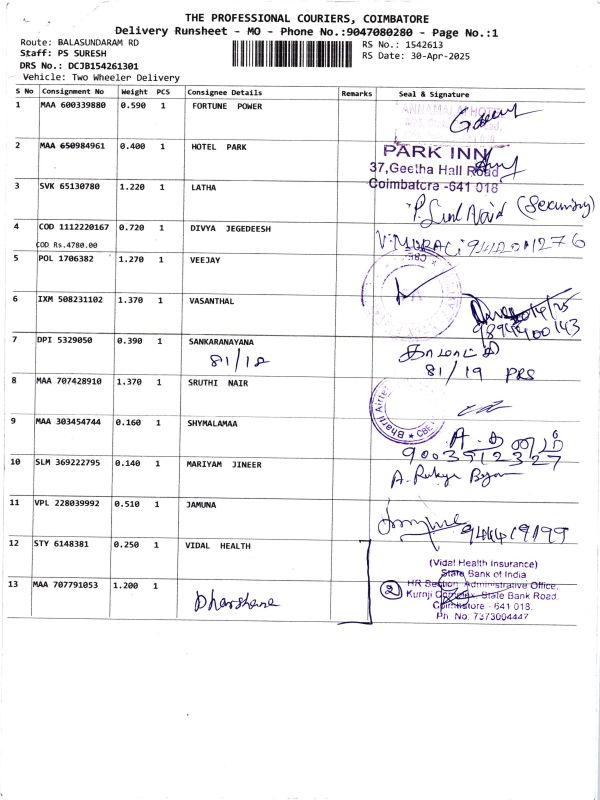 THE PROFESSIONAL COURIERS, COIMBATORE
Delivery Runsheet - MO - Phone No.:9047080280 - Page No.:1
Route: BALASUNDARAM RD
RS No.: 1542613
Staff: PS SURESH
RS Date: 30-Apr-2025
DRS No.: DCJB154261301
Vehicle: Two Wheeler Delivery
S No Consignment No Weight PCS Consignee Details Remarks Seal & Signature
1 MAA 600339880 0.590 1 FORTUNE POWER
2 MAA 650984961 0.400 1 HOTEL PARK
PARK INN
37,Geetha Hall Road
Coimbatore -641 018
3 SVK 65130780 1.220 1 LATHA
(Security)
4 COD 1112220167 0.720 1 DIVYA JEGEDEESH
COD Rs.4780.00
5 POL 1706382 1.270 1 VEEJAY
CBE
6 IXM 508231102 1.370 1 VASANTHAL
9894400143
7 DPI 5329050 0.390 1 SANKARANAYANA
81/18
காமாட்சி
81/19 PRS
8 MAA 707428910 1.370 1 SRUTHI NAIR
Bharti Airtel
CBE
9 MAA 303454744 0.160 1 SHYMALAMAA
9003512327
10 SLM 369222795 0.140 1 MARIYAM JINEER
11 VPL 228039992 0.510 1 JAMUNA
12 STY 6148381 0.250 1 VIDAL HEALTH
(Vidal Health Insurance)
State Bank of India
13 MAA 707791053 1.200 1
Dharshana
2
HR Section, Administrative Office,
Kurnji Complex, State Bank Road,
Coimbatore - 641 018.
Ph. No: 7373004447